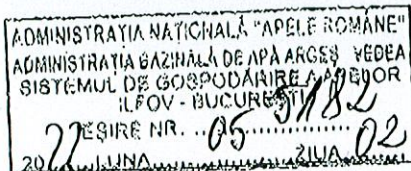 ADMINISTRAȚIA NAȚIONALĂ "APELE ROMÂNE"
ADMINISTRAȚIA BAZINALĂ DE APĂ ARGEȘ VEDEA
SISTEMUL DE GOSPODĂRIRE A APELOR
ILFOV - BUCUREȘTI
IEȘIRE NR. ...
2022 LUNA 05 ZIUA 02